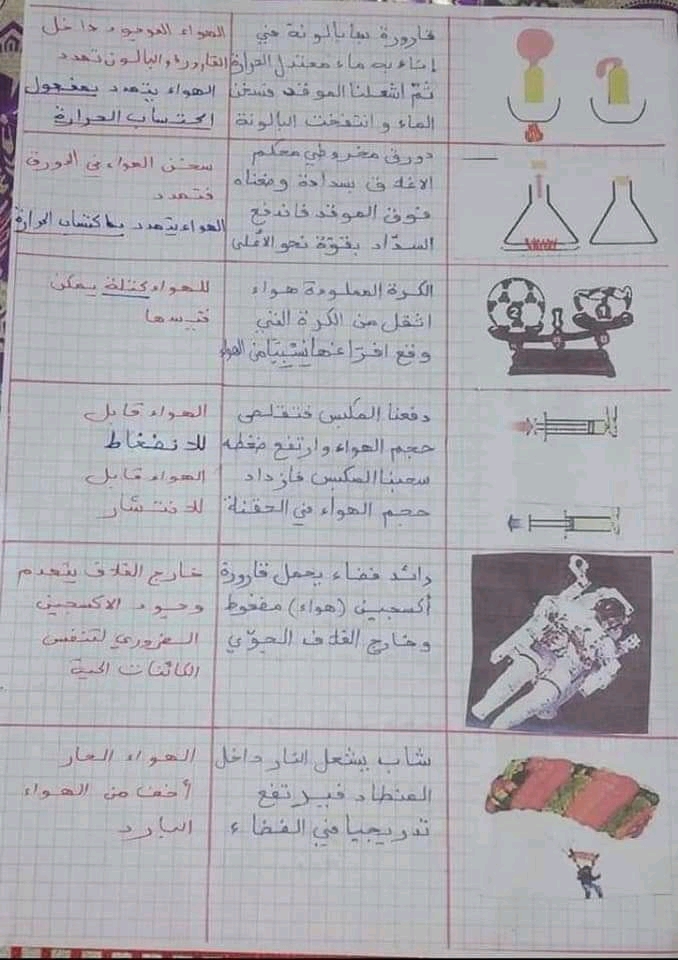 قارورة بها بالونة في
إناء به ماء معتدل الحرارة
ثمّ اشعلنا الموقد فسخن
الماء وانتفخت البالونة
الهواء الموجود داخل
القارورة والبالون تمدد
الهواء يتمدد بمفعول
اكتساب الحرارة
دورق مخروطي محكم
الاغلاق بسدادة وضعناه
فوق الموقد فاندفع
السدّاد بقوّة نحو الأعلى
سخن الهواء في الدورق
فتمدد
الهواء يتمدد باكتساب الحرارة
الكرة المملوءة هواء
اثقل من الكرة التي
وقع افراغها نسبيّا من الهواء
للهواء كتلة يمكن
قيسها
دفعنا المكبس فتقلص
حجم الهواء وارتفع ضغطه
سحبنا المكبس فازداد
حجم الهواء في الحقنة
الهواء قابل
للانضغاط
الهواء قابل
للانتشار
رائد فضاء يحمل قارورة
أكسجين (هواء) مضغوط
وخارج الغلاف الجوّي
خارج الغلاف ينعدم
وجود الاكسجين
الضروري لتنفس
الكائنات الحية
شاب يشعل النار داخل
المنطاد فيرتفع
تدريجيا في الفضاء
الهواء الحار
أخف من الهواء
البارد